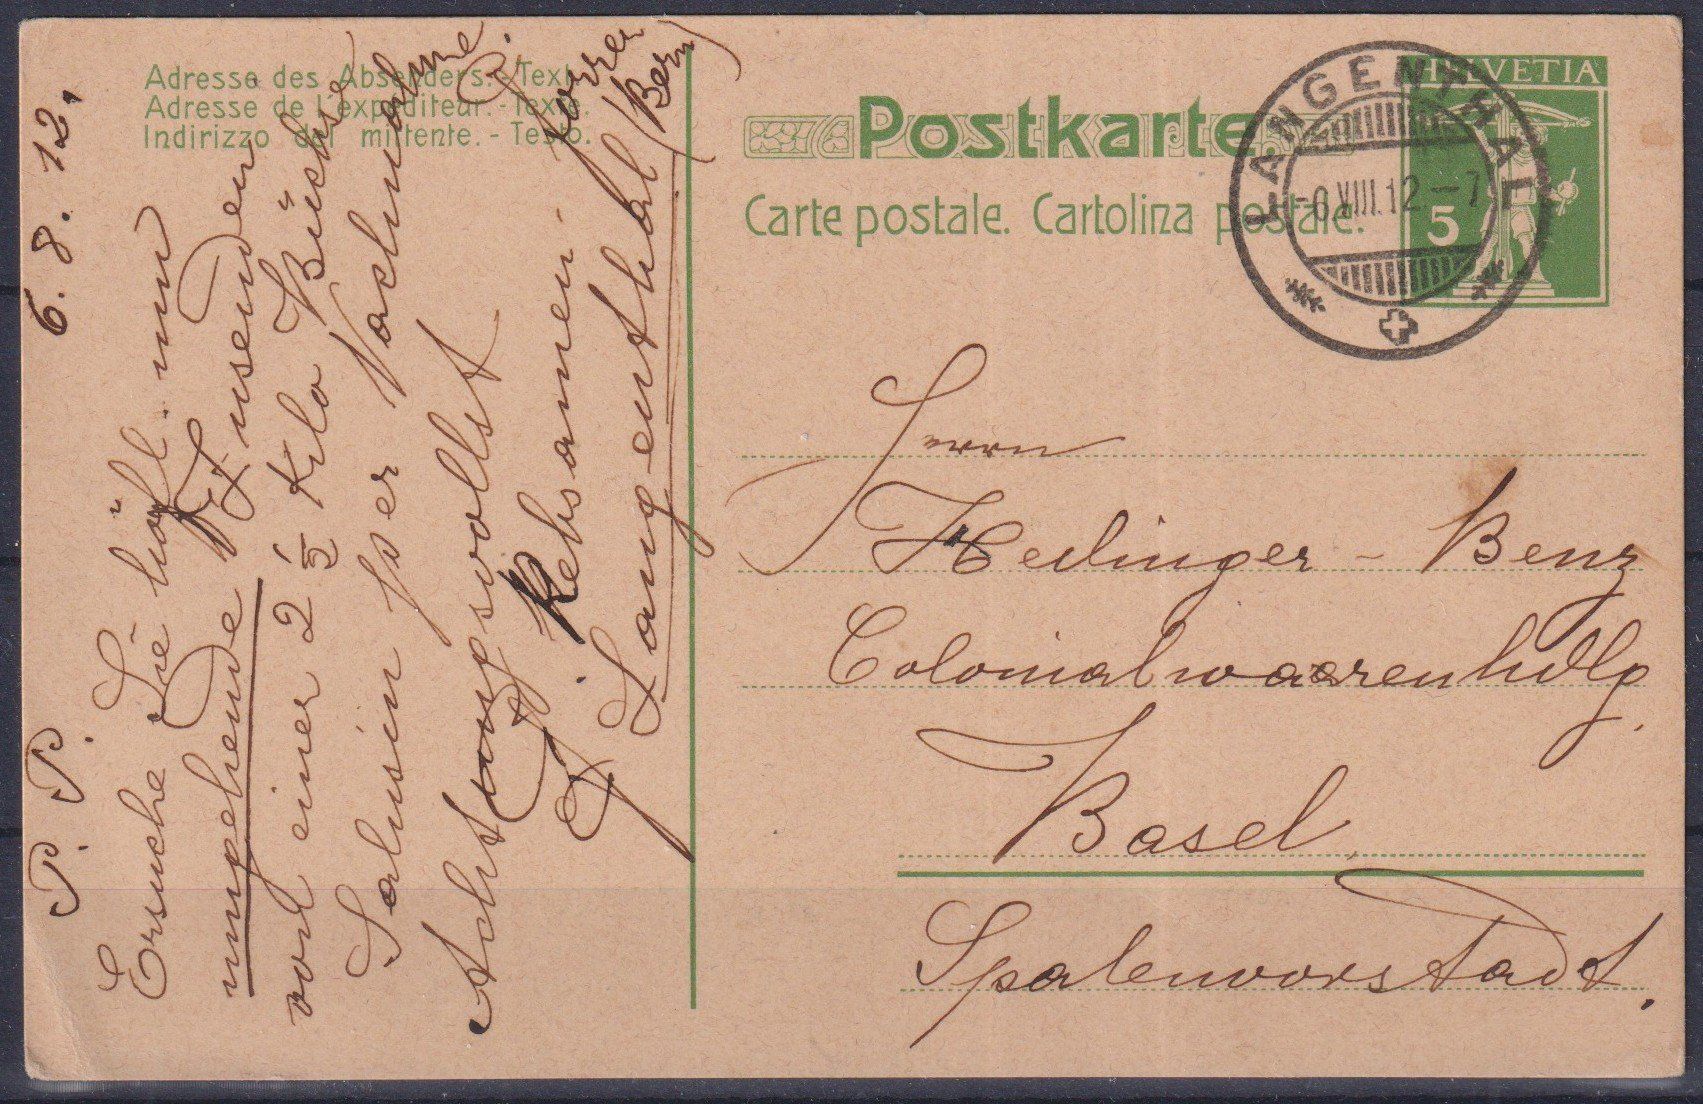 Adresse des Absenders. - Text.
Adresse de l'expéditeur. - Texte.
Indirizzo del mittente. - Testo.
P. P. 6. 8. 12.
Ersuche Sie höfl. um
umgehende Zusendung
von einer 2 1/2 Kilo Büchse
Salusin per Nachnahme.
Achtungsvollst
Rebsamen-
Langenthal (Bern)
Postkarte
Carte postale. Cartolina postale.
LANGENTHAL
-6.VIII.12.-7
HELVETIA
5
Herrn
Hedinger - Benz
Colonialwaarenhdlg.
Basel,
Spalenvorstadt.